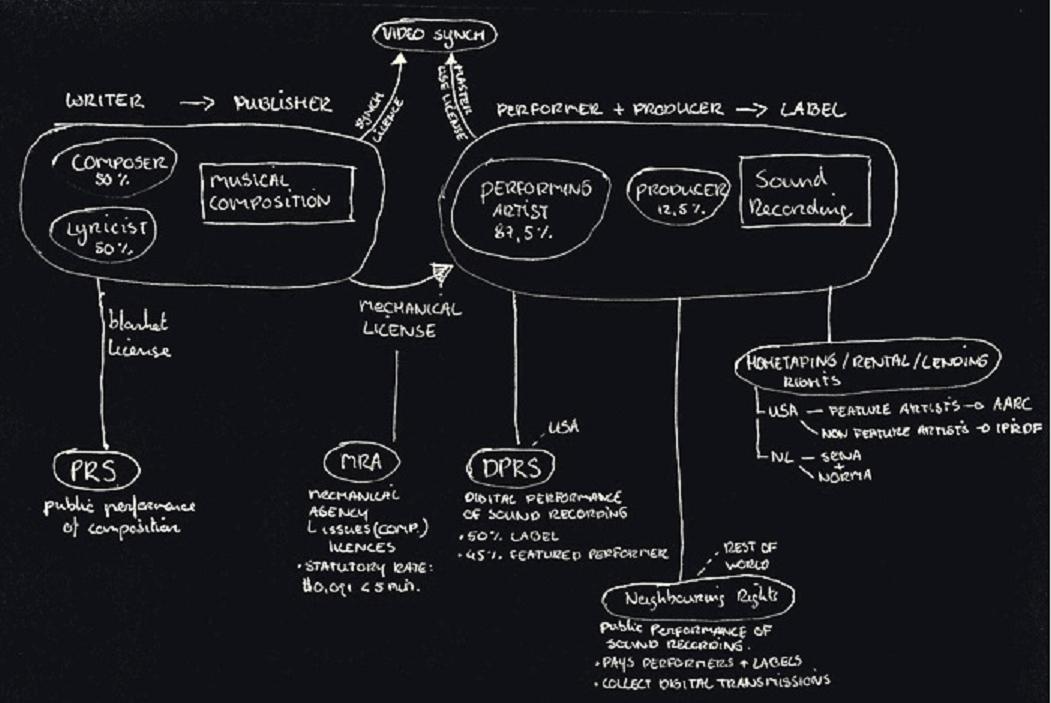 VIDEO SYNCH
SYNCH
LICENCE
MASTER
USE LICENSE
WRITER → PUBLISHER
PERFORMER + PRODUCER → LABEL
COMPOSER
50%
LYRICIST
50%
MUSICAL
COMPOSITION
PERFORMING
ARTIST
87,5%
PRODUCER
12,5%
Sound
Recording
blanket
License
MECHANICAL
LICENSE
HOMETAPING/RENTAL/LENDING
RIGHTS
USA — FEATURE ARTISTS → AARC
NON FEATURE ARTISTS → IPRDF
NL — SENA
+
NORMA
PRS
public performance
of composition
MRA
MECHANICAL
AGENCY
ISSUES (COMP.)
LICENCES
• STATUTORY RATE:
$0,091 < 5 min.
USA
DPRS
DIGITAL PERFORMANCE
OF SOUND RECORDING
• 50% LABEL
• 45% FEATURED PERFORMER
REST OF
WORLD
Neighbouring Rights
Public PERFORMANCE OF
SOUND RECORDING.
• PAYS PERFORMERS + LABELS
• COLLECT DIGITAL TRANSMISSIONS